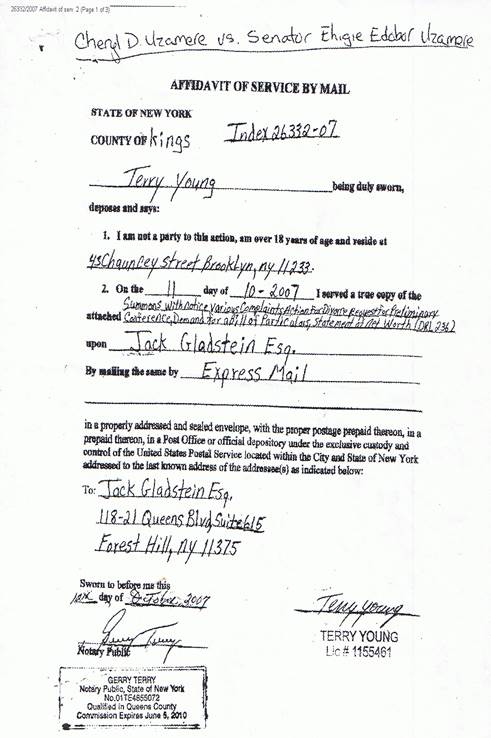 26332/2007 Affidavit of serv. 2 (Page 1 of 3)
Cheryl D. Uzamere vs. Senator Ehigie Edobor Uzamere
AFFIDAVIT OF SERVICE BY MAIL
STATE OF NEW YORK
COUNTY OF Kings Index 26332-07
Terry Young being duly sworn,
deposes and says:
1. I am not a party to this action, am over 18 years of age and reside at
43 Chauncey Street Brooklyn, ny 11233.
2. On the 11 day of 10-2007 I served a true copy of the
Summons with Notice Various Complaints Action For Divorce Request For Preliminary
attached Conference, Demand for a Bill of Particulars, Statement of Net Worth (DRL 236)
upon Jack Gladstein Esq.
By mailing the same by Express Mail
in a properly addressed and sealed envelope, with the proper postage prepaid thereon, in a
prepaid thereon, in a Post Office or official depository under the exclusive custody and
control of the United States Postal Service located within the City and State of New York
addressed to the last known address of the addressee(s) as indicated below:
To: Jack Gladstein Esq.
118-21 Queens Blvd, Suite 615
Forest Hill, ny 11375
Sworn to before me this
day of October, 2007
Terry Young
Gerry Terry
Notary Public
TERRY YOUNG
Lic # 1155461
GERRY TERRY
Notary Public, State of New York
No.01TE4855072
Qualified in Queens County
Commission Expires June 5, 2010